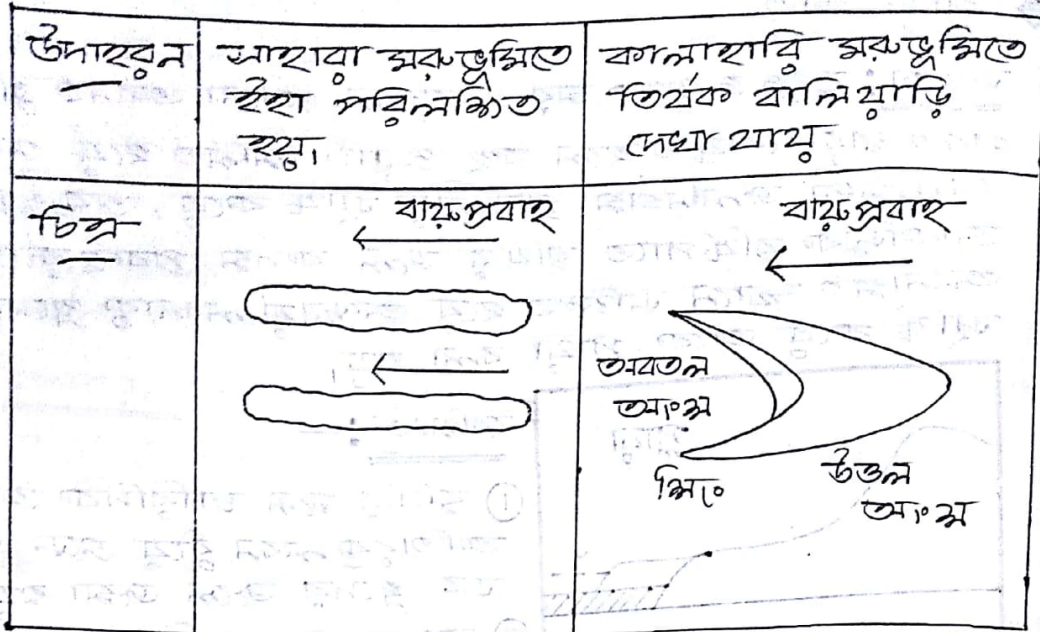 উদাহরন
সাহারা মরুভূমিতে
ইহা পরিলক্ষিত
হয়।
কালাহারি মরুভূমিতে
তির্যক বালিয়াড়ি
দেখা যায়
চিত্র
বায়ুপ্রবাহ
বায়ুপ্রবাহ
অবতল
অংশ
শিং
উত্তল
অংশ